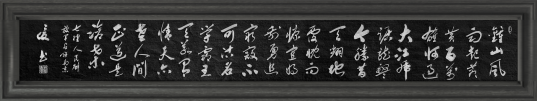 鍾山風
雨起蒼
黃百萬
雄師過
大江虎
踞龍盤
今勝昔
天翻地
覆慨而
慷宜將
剩勇追
窮寇不
可沽名
學霸王
天若有
情天亦
老人間
正道是
滄桑
七律人民解
放軍占領南京